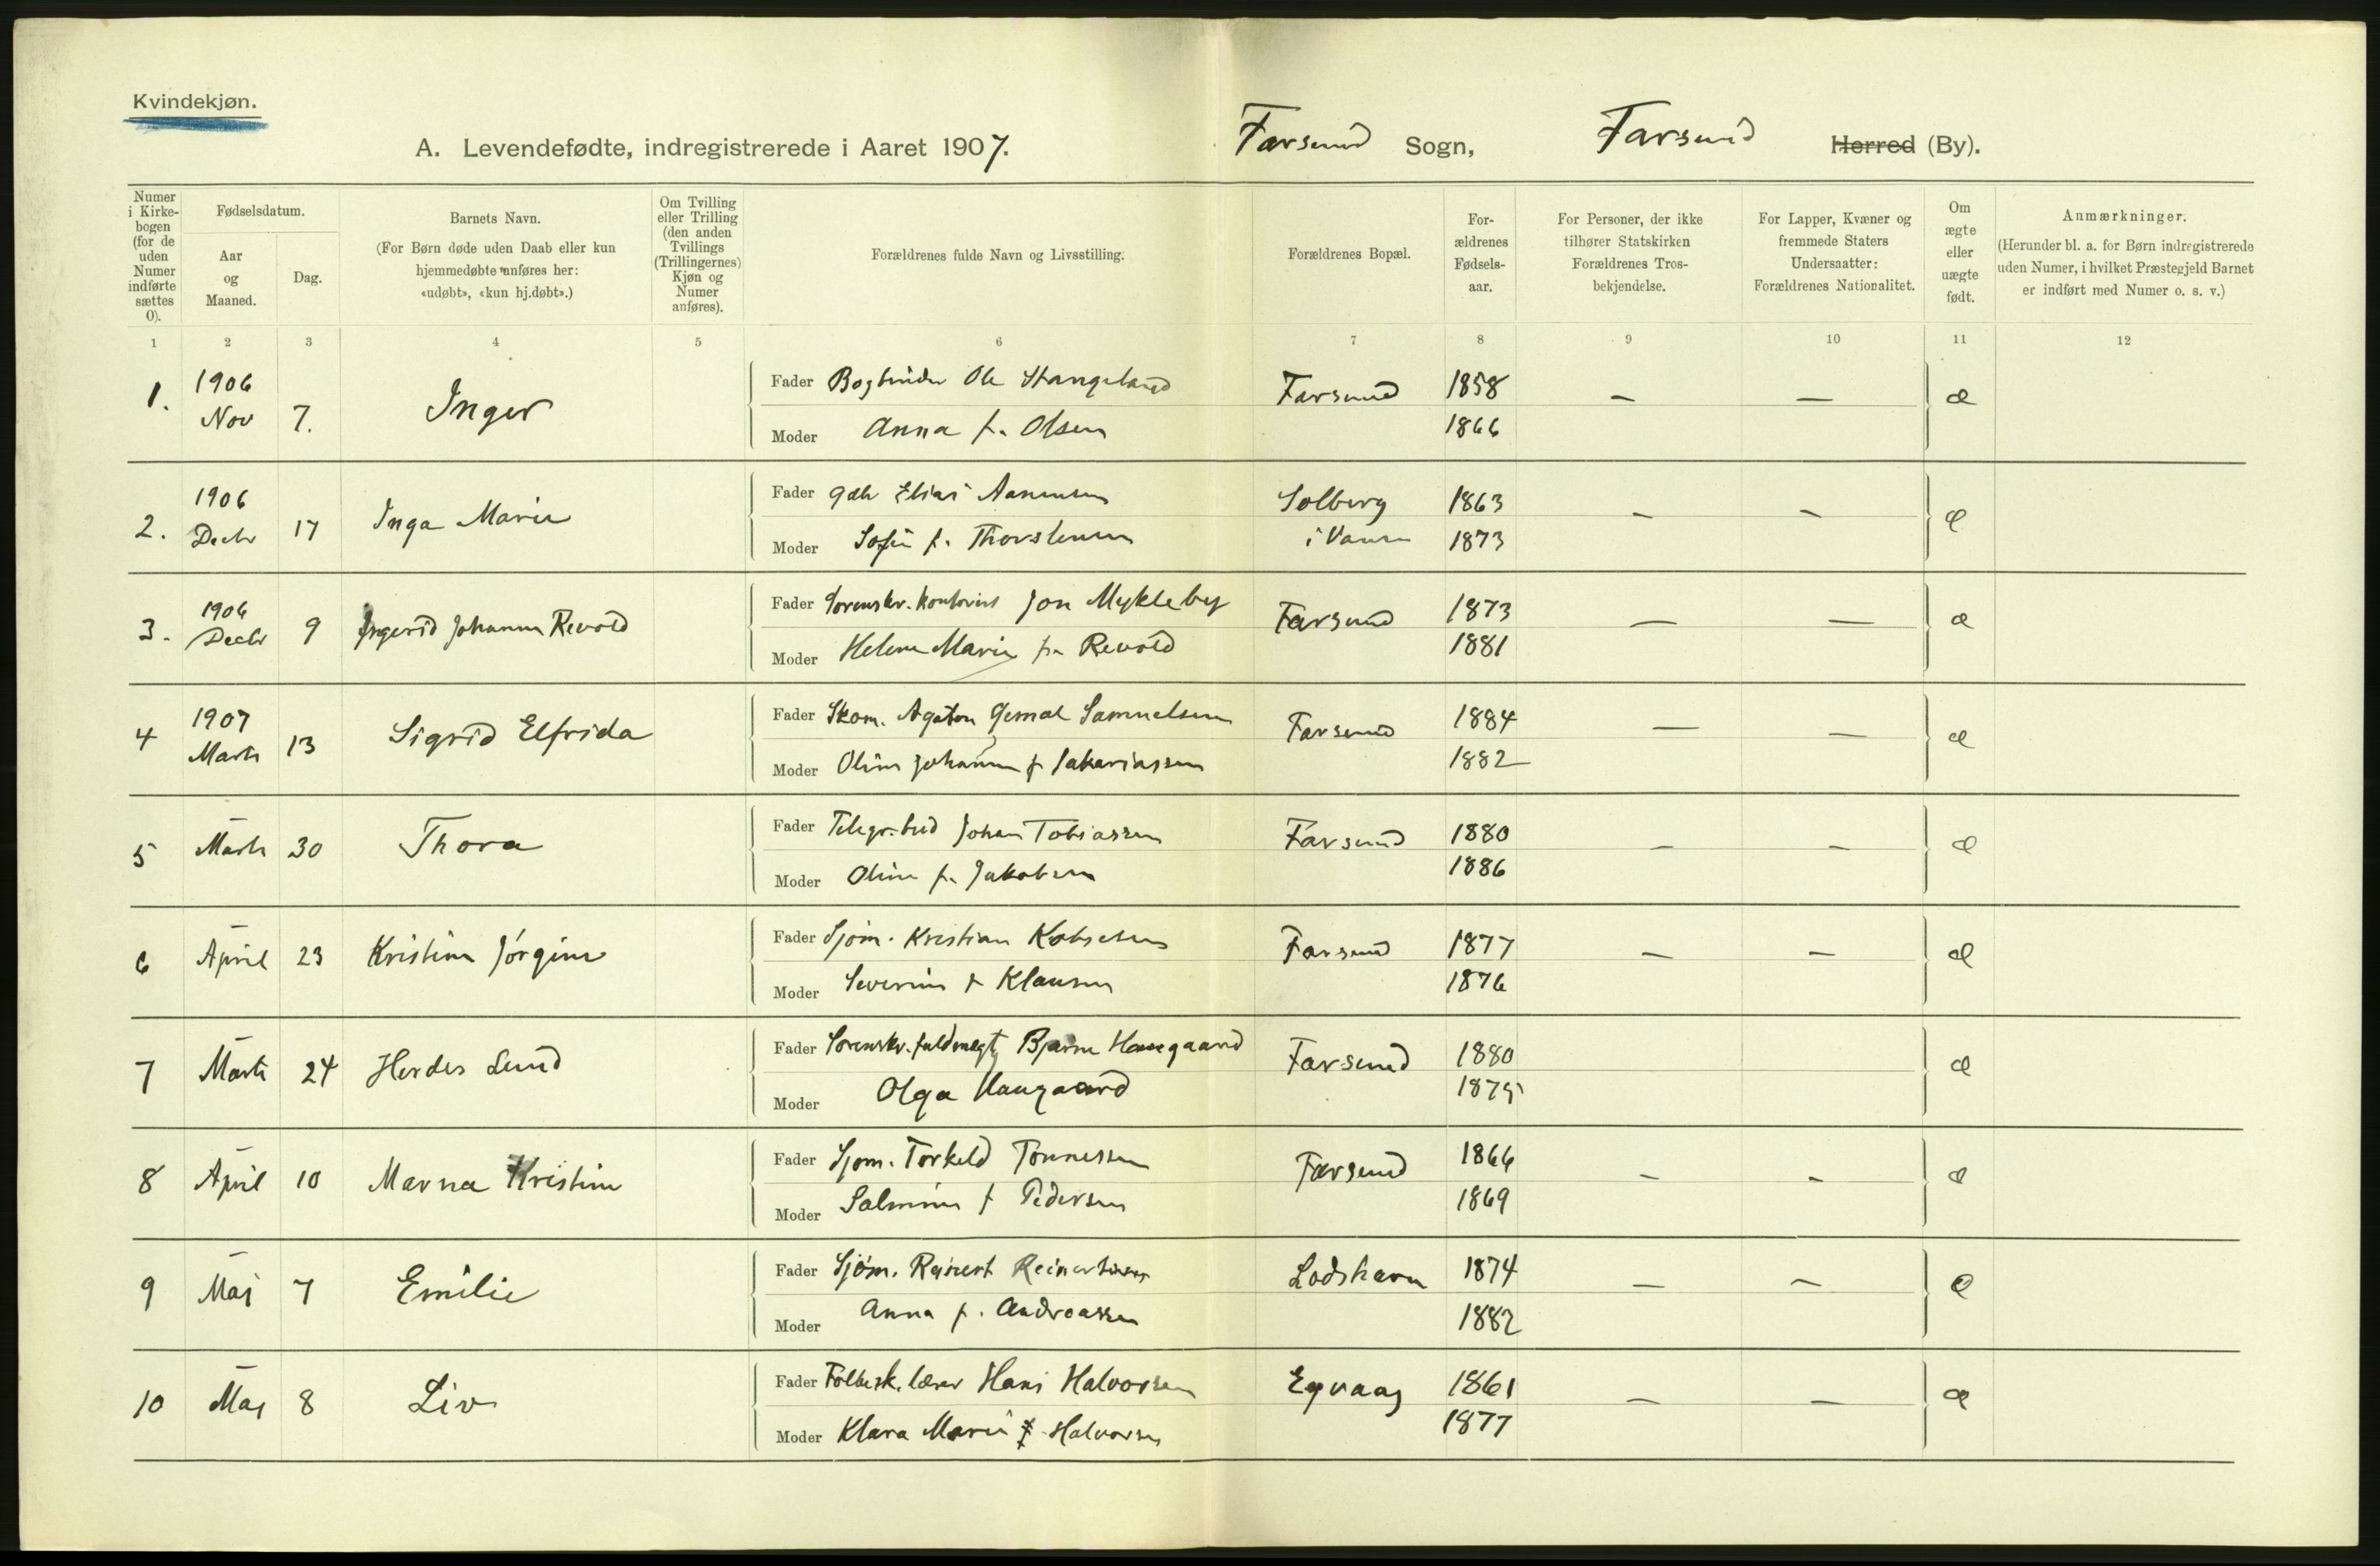 Kvindekjøn.
A. Levendefødte, indregistrerede i Aaret 1907.
Farsund Sogn, Farsund Herred (By).
Numer i Kirke-bogen (for de uden Numer indførte sættes 0).
Fødselsdatum.
Aar og Maaned.
Dag.
Barnets Navn.
(For Børn døde uden Daab eller kun hjemmedøbte anføres her: «udøbt», «kun hj.døbt».)
Om Tvilling eller Trilling (den anden Tvillings (Trillingernes) Kjøn og Numer anføres).
Forældrenes fulde Navn og Livsstilling.
Forældrenes Bopæl.
For-ældrenes Fødsels-aar.
For Personer, der ikke tilhører Statskirken Forældrenes Tros-bekjendelse.
For Lapper, Kvæner og fremmede Staters Undersaatter: Forældrenes Nationalitet.
Om ægte eller uægte født.
Anmærkninger.
(Herunder bl. a. for Børn indregistrerede uden Numer, i hvilket Præstegjeld Barnet er indført med Numer o. s. v.)
1 2 3 4 5 6 7 8 9 10 11 12
1. 1906 Nov 7. Inger
Fader Bogbinder Ole Stangeland Farsund 1858 — — æ
Moder Anna f. Olsen 1866
2. 1906 Decbr 17 Inga Marie
Fader Elias Aanensen Solberg 1863 — — æ
Moder Sofie f. Thorstensen i Vanse 1873
3. 1906 Decbr 9 Ingerid Johanne Revold
Fader Sorenskr. kontorist Jon Mykleby Farsund 1873 — — æ
Moder Helene Marie f. Revold 1881
4 1907 Marts 13 Sigrid Elfrida
Fader Skom. Agaton Samuelsen Farsund 1884 — — æ
Moder Oline Johanne f Sakariassen 1882
5 — Marts 30 Thora
Fader Telegr.bud Johan Tobiassen Farsund 1880 — — æ
Moder Oline f. Jakobsen 1886
6 — April 23 Kristine Jørgine
Fader Sjøm. Kristian Farsund 1877 — — æ
Moder Severine f Klausen 1876
7 — Marts 24 Herdes Lund
Fader Sorenskr. fuldmægtg Bjarne Haugaard Farsund 1880 æ
Moder Olga Haugaard 1875
8 — April 10 Marna Kristine
Fader Sjøm. Torkeld Tønnessen Farsund 1866 — — æ
Moder Salmine f Pedersen 1869
9 — Mai 7 Emilie
Fader Sjøm. Reinert Reinertsen Lodshavn 1874 — — æ
Moder Anna f. Andreassen 1882
10 — Mai 8 Liv
Fader Folkesk. lærer Hans Halvorsen Eqvaag 1861 — — æ
Moder Klara Marie f Halvorsen 1877